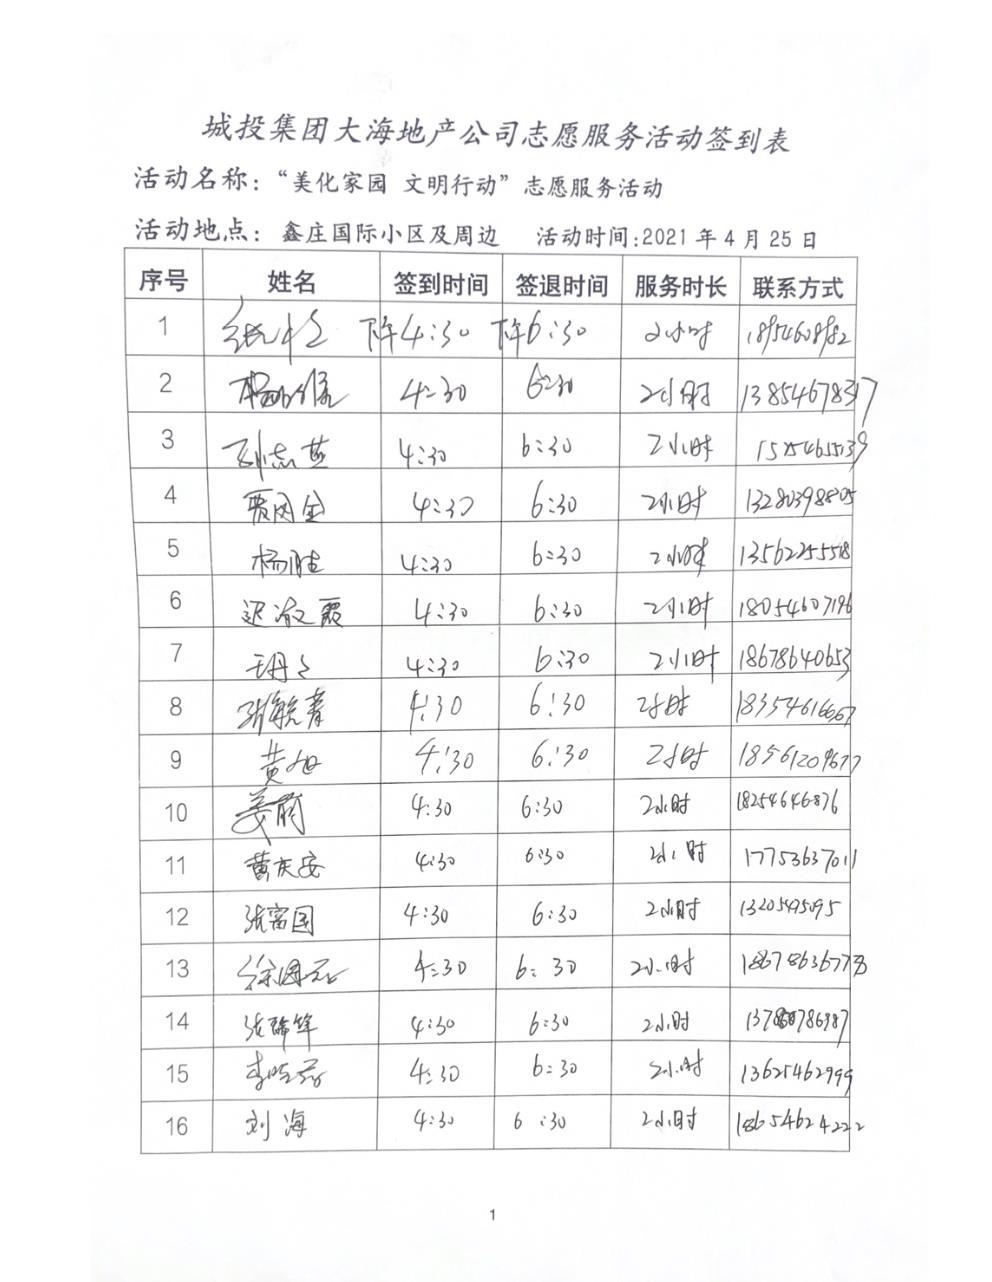 城投集团大海地产公司志愿服务活动签到表
活动名称：“美化家园 文明行动”志愿服务活动
活动地点：鑫庄国际小区及周边 活动时间：2021年4月25日
序号 姓名 签到时间 签退时间 服务时长 联系方式
1 下午4:30 下午6:30 2小时
2 4:30 6:30 2小时 13854678317
3 孙志燕 4:30 6:30 2小时
4 4:30 6:30 2小时 13280398805
5 杨胜 4:30 6:30 2小时 13562255518
6 迟淑霞 4:30 6:30 2小时 18054607196
7 王丹丹 4:30 6:30 2小时 18678640653
8 张毓菁 4:30 6:30 2小时
9 黄旭 4:30 6:30 2小时
10 姜蔚 4:30 6:30 2小时 18254646876
11 黄庆安 4:30 6:30 2小时 17753637011
12 张富国 4:30 6:30 2小时
13 4:30 6:30 2小时
14 4:30 6:30 2小时
15 4:30 6:30 2小时 13625462999
16 刘海 4:30 6:30 2小时 18654624222
1